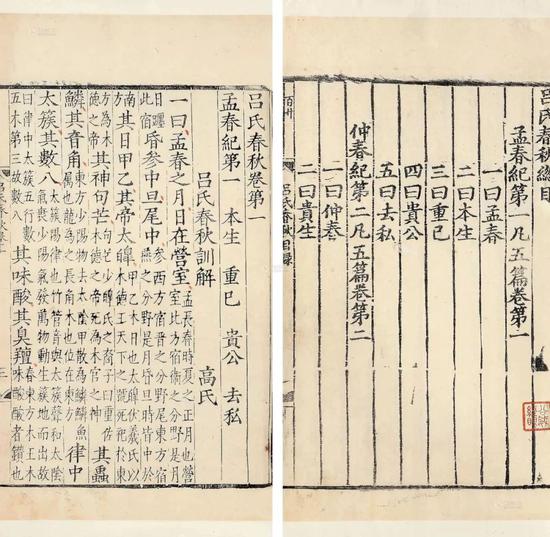 呂氏春秋總目
孟春紀第一凡五篇卷第一
一曰孟春
二曰本生
三曰重己
四曰貴公
五曰去私
仲春紀第二凡五篇卷第二
一曰仲春
二曰貴生
呂氏春秋目錄
呂氏春秋卷第一
孟春紀第一 本生 重己 貴公 去私
呂氏春秋訓解 高氏
一曰孟春之月日在營室孟長春時夏之正月也營室北方宿衛之分野是月
日躔此宿昏參中旦尾中參西方宿晉之分野尾東方宿燕之分野是月昏旦時皆中於
南方其日甲乙其帝太皥甲乙木日也太皥伏羲氏以木德王天下之號死祀於東
方為木德之帝其神句芒句芒少皥氏之裔子曰重佐木德之帝死為木官之神其蟲
鱗其音角東方少陽物去太陰甲散為鱗鱗魚屬也龍為之長角木也位在東方律中
太蔟其數八太蔟陽律也竹管音與太蔟聲和太陰氣衰少陽氣發萬物動生蔟地而出故
曰律中太蔟五行數五木第三故數八其味酸其臭羶春東方木王木味酸酸者鑽也